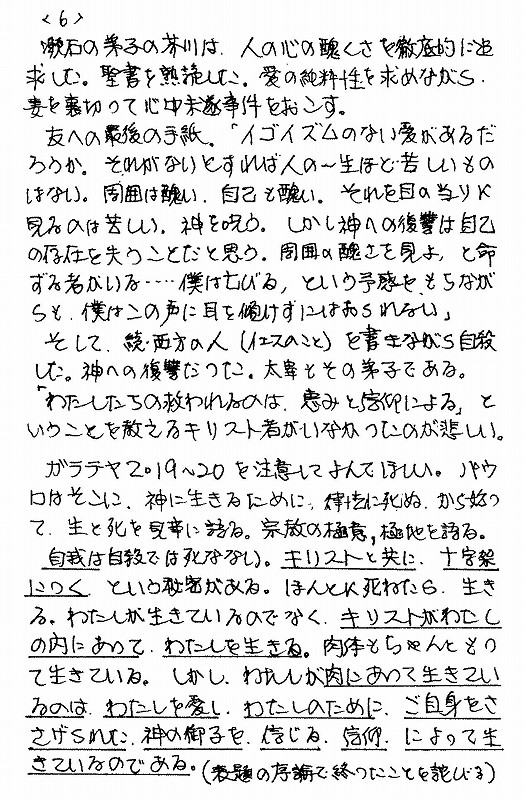 <6>
漱石の弟子の芥川は、人の心の醜くさを徹底的に追
求した。聖書を熟読した。愛の純粋性を求めながら、
妻を裏切って心中未遂事件をおこす。
友への最後の手紙。「イゴイズムのない愛があるだ
ろうか。それがないとすれば人の一生ほど苦しいもの
はない。周囲は醜い、自己も醜い。それを目の当りに
見るのは苦しい。神を呪う。しかし神への復讐は自己
の存在を失うことだと思う。周囲の醜さを見よ、と命
ずる者がいる……僕は亡びる、という予感をもちなが
らも、僕はこの声に耳を傾けずにはおられない」
そして、続・西方の人（イエスのこと）を書きながら自殺
した。神への復讐だった。太宰とその弟子である。
「わたしたちの救われるのは、恵みと信仰による」と
いうことを教えるキリスト者がいなかったのが悲しい。
ガラテヤ2.19~20を注意してよんでほしい。パウ
ロはそこに、神に生きるために、律法に死ぬ、から始っ
て、生と死を見事に語る。宗教の極意，極地を語る。
自我は自殺では死なない。キリストと共に、十字架
につく、という秘密がある。ほんとに死ねたら、生き
る。わたしが生きているのでなく、キリストがわたし
の内にあって、わたしを生きる。肉体もちゃんともっ
て生きている。しかし、わたしが肉にあって生きてい
るのは、わたしを愛し、わたしのために、ご自身をさ
さげられた、神の御子を、信じる、信仰、によって生
きているのである。（表題の序論で終ったことを詫びる）